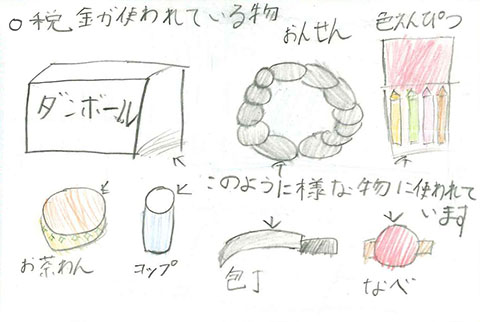 ○税金が使われている物
おんせん
色えんぴつ
ダンボール
このように様な物に使われて
います
お茶わん
コップ
包丁
なべ